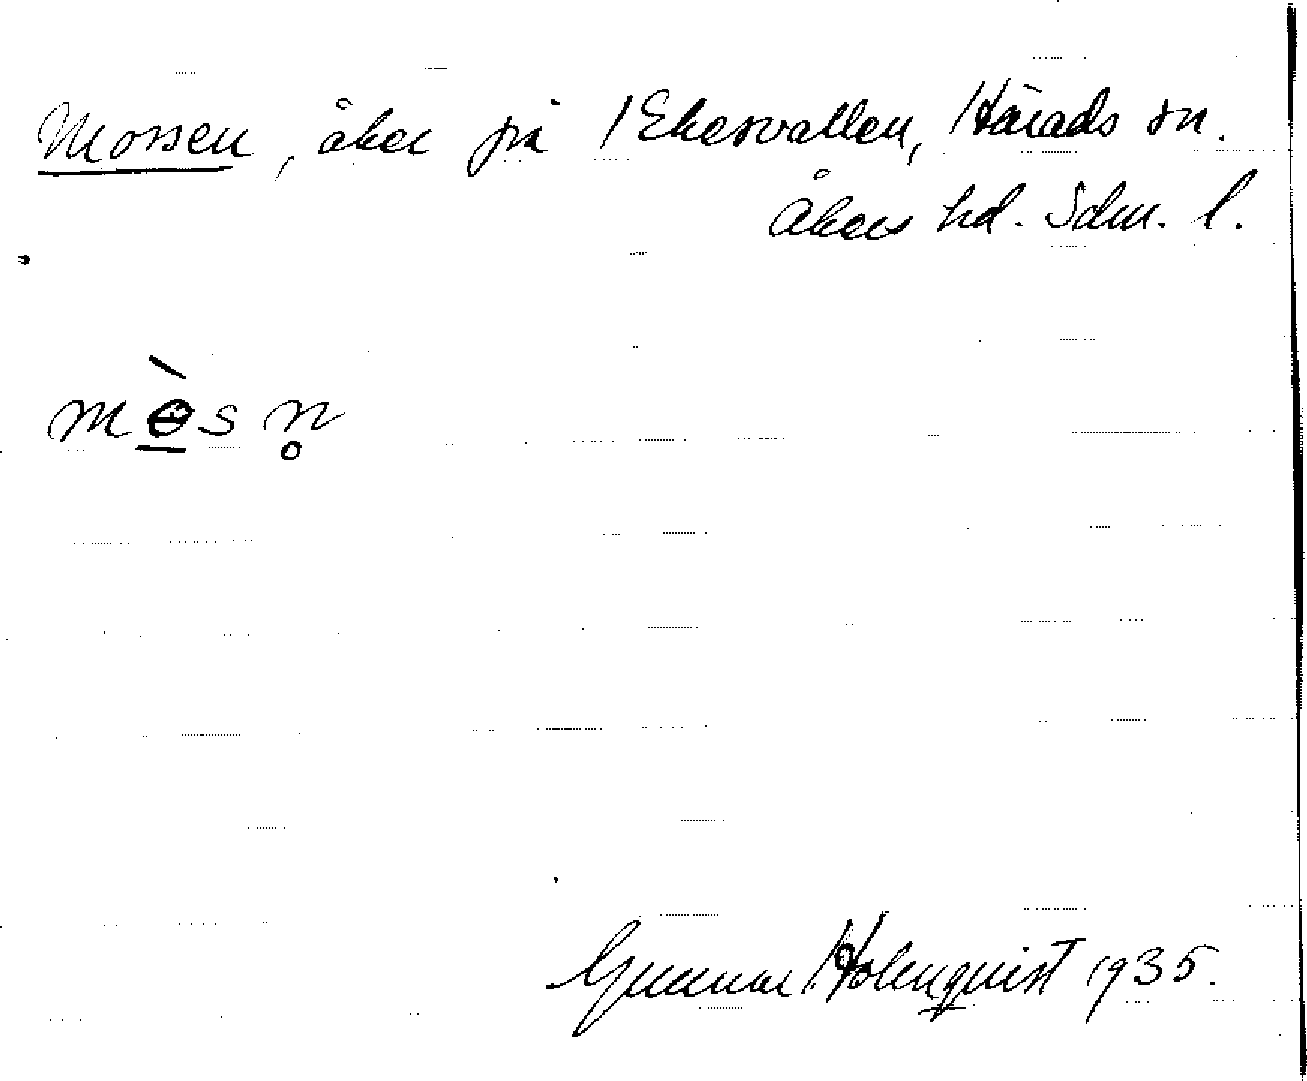 Mossen, åker på /Ekesvallen, Härads sn.
Åkers hd. Sdm. l.
mɵ̀sn̥
Gunnar Holmquist 1935.